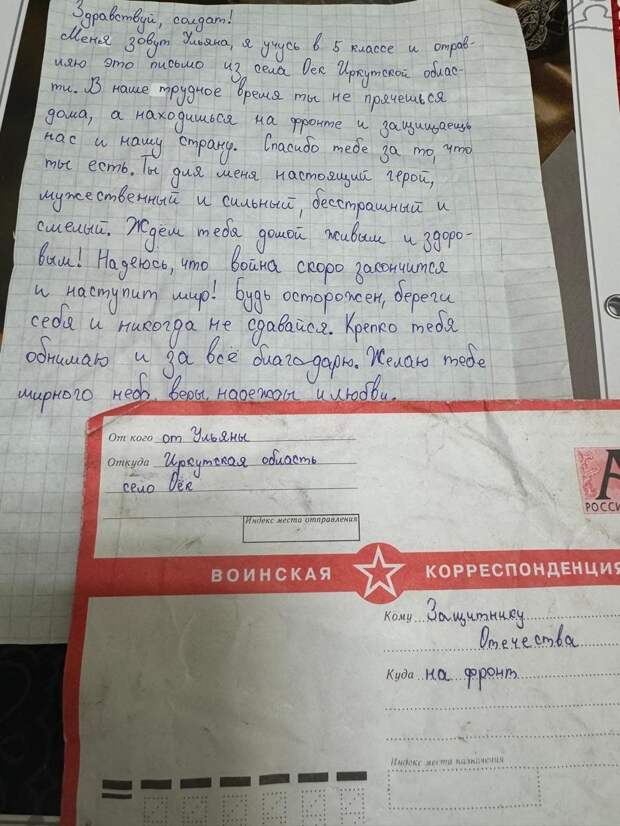 Здравствуй, солдат!
Меня зовут Ульяна, я учусь в 5 классе и отрав-
ляю это письмо из села Оек Иркутской облас-
ти. В наше трудное время ты не прячешься
дома, а находишься на фронте и защищаешь
нас и нашу страну. Спасибо тебе за то, что
ты есть. Ты для меня настоящий герой,
мужественный и сильный, бесстрашный и
смелый. Ждём тебя домой живым и здоро-
вым! Надеюсь, что война скоро закончится
и наступит мир! Будь осторожен, береги
себя и никогда не сдавайся. Крепко тебя
обнимаю и за всё благодарю. Желаю тебе
мирного неба, веры, надежды и любви.
От кого от Ульяны
Откуда Иркутская область
село Оёк
Индекс места отправления
А
РОССИ
ВОИНСКАЯ КОРРЕСПОНДЕНЦИЯ
Кому Защитнику
Отечества
Куда на фронт
Индекс места назначения